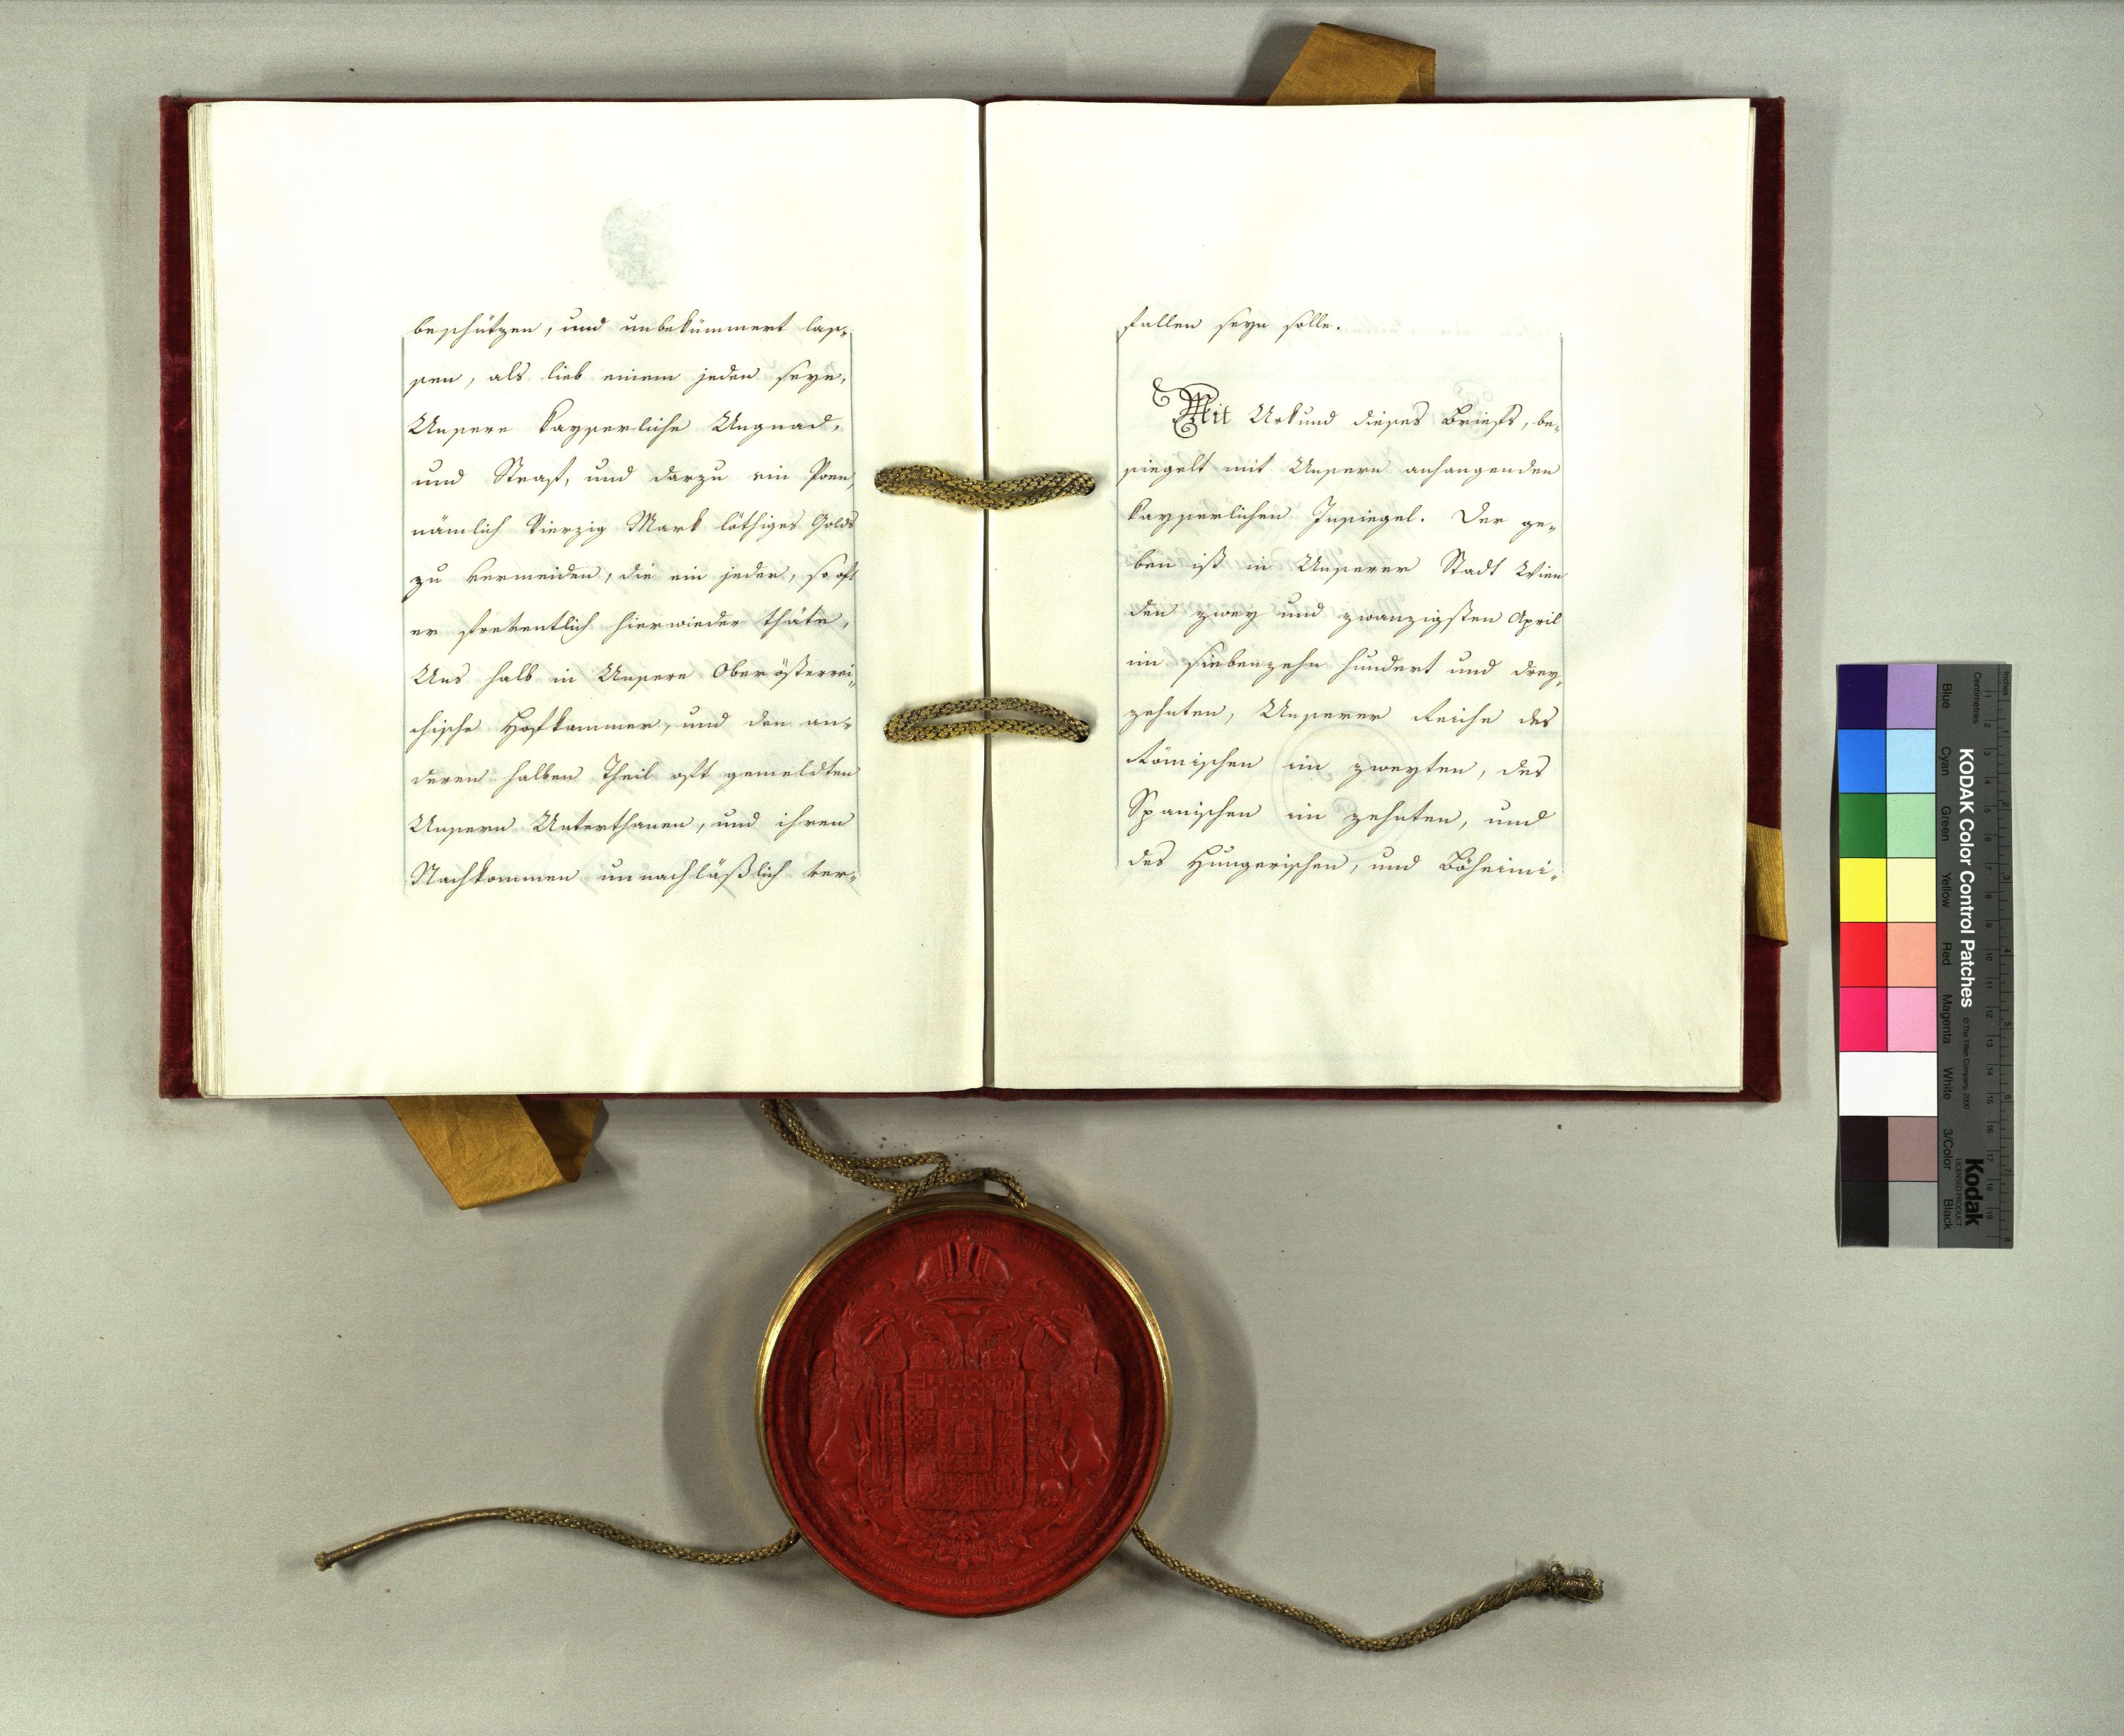 beschützen, und unbekümmert las-
sen, als lieb einem jeden seye,
Unsere kayserliche Ungnad,
und Straff, und darzu ein Poen,
nämlich vierzig Mark löthiges Golds
zu vermeiden, die ein jeder, so oft
er freventlich hierwieder thäte,
Uns halb in Unsere Oberösterrei-
chische Hofkammer, und den an-
deren halben Theil oft gemeldten
Unsern Unterthanen, und ihren
Nachkommen unnachläßlich ver-
fallen seyn solle.
Mit Urkund dieses Briefs, be-
siegelt mit Unsern anhangenden
kayserlichen Insiegel. Der ge-
ben ist in Unserer Stadt Wien
den zwey und zwanzigsten April
im siebenzehn hundert und drey-
zehnten, Unserer Reiche des
Römischen im zweyten, des
Spanischen im zehnten, und
des Hungerischen, und Böheimi-
KODAK Color Control Patches
© The Tiffen Company, 2000
Kodak
LICENSED PRODUCT
Blue Cyan Green Yellow Red Magenta White 3/Color Black
Inches
Centimetres
1 2 3 4 5 6 7 8 9 10 11 12 13 14 15 16 17 18 19